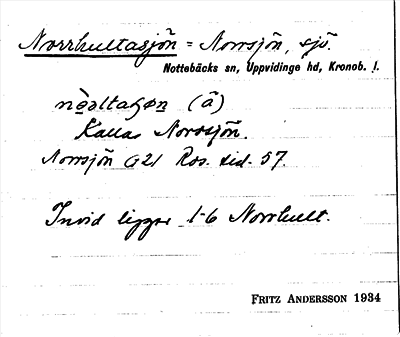 Norrhultasjön = Norrsjön, sjö.
Nottebäcks sn, Uppvidinge hd, Kronob. l.
(å)
Kallas Norrsjön.
Norrsjön G21 Ros. sid. 57.
Invid ligger 1-6 Norrhult.
FRITZ ANDERSSON 1934